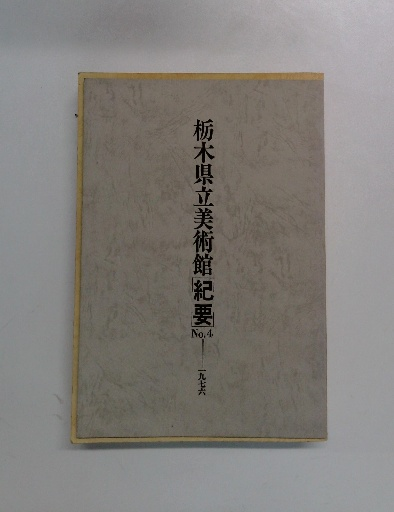 栃木県立美術館「紀要」No.4——一九七六